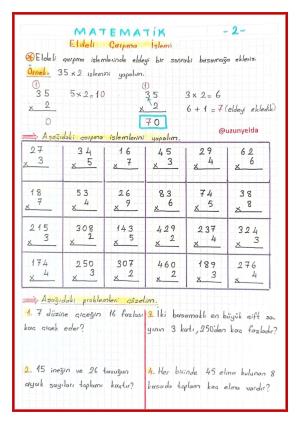 MATEMATİK -2-
Eldeli Çarpma İşlemi
Eldeli çarpma işlemlerinde eldeyi bir sonraki basamağa ekleriz.
Örnek: 35 x 2 işlemini yapalım.
1 1
35 5 x 2 = 10 35 3 x 2 = 6
x 2 x 2 6 + 1 = 7 (eldeyi ekledik)
0 70
@uzunyelda
Aşağıdaki çarpma işlemlerini yapalım.
27 34 16 45 29 62
x 3 x 5 x 7 x 3 x 2 x 6
18 53 26 83 74 38
x 7 x 4 x 9 x 6 x 5 x 8
215 308 143 429 237 324
x 3 x 2 x 5 x 2 x 4 x 3
174 250 307 460 189 276
x 4 x 3 x 2 x 3 x 4
Aşağıdaki problemleri çözelim.
1. 7 düzine çiçeğin 16 fazlası
kaç çiçek eder?
3. İki basamaklı en büyük çift sa-
yının 3 katı, 250'den kaç fazladır?
2. 15 ineğin ve 26 tavuğun
ayak sayıları toplamı kaçtır?
4. Her birinde 45 elma bulunan 8
kasada toplam kaç elma vardır?